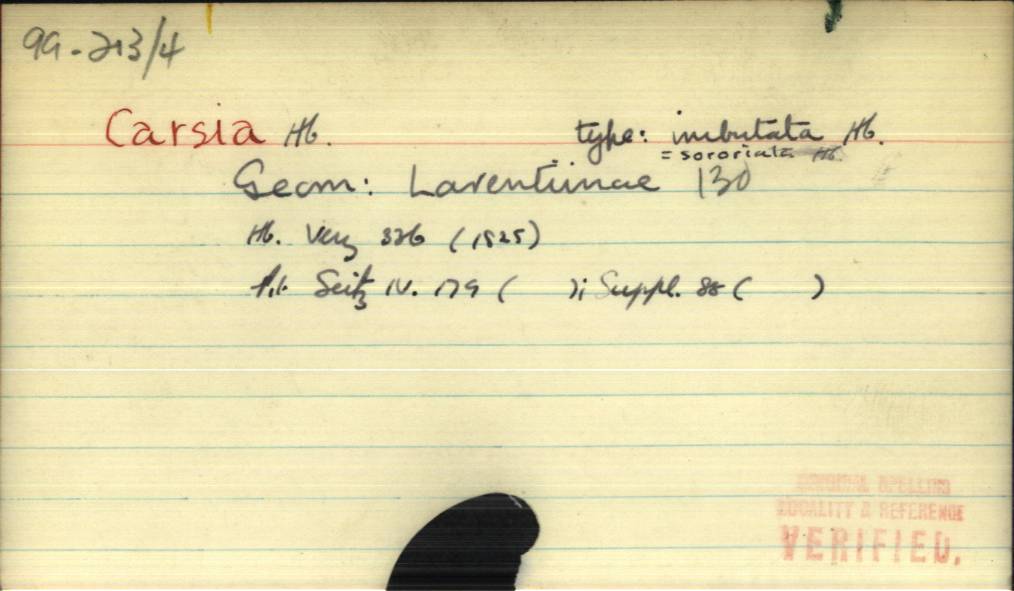 99-213/4
Carsia Hb. type: imbutata Hb.
= sororiata Hb.
Geom: Larentiinae 130
Hb. Verz 326 (1825)
Seitz IV. 179 ( ); Suppl. 88 ( )
ORIGINAL SPELLING
LOCALITY & REFERENCE
VERIFIED.